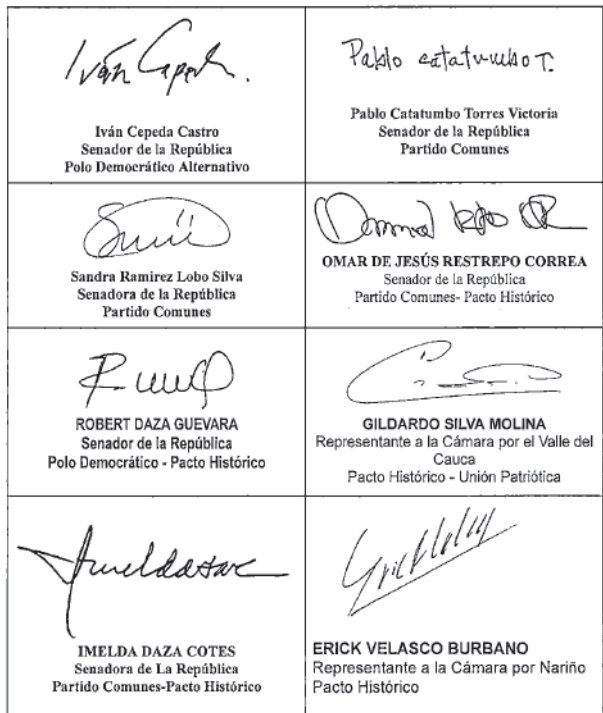 Iván Cepeda.
Iván Cepeda Castro
Senador de la República
Polo Democrático Alternativo
Pablo catatumbo T.
Pablo Catatumbo Torres Victoria
Senador de la República
Partido Comunes
Sandra Ramirez Lobo Silva
Senadora de la República
Partido Comunes
OMAR DE JESÚS RESTREPO CORREA
Senador de la República
Partido Comunes- Pacto Histórico
ROBERT DAZA GUEVARA
Senador de la República
Polo Democrático - Pacto Histórico
GILDARDO SILVA MOLINA
Representante a la Cámara por el Valle del
Cauca
Pacto Histórico - Unión Patriótica
IMELDA DAZA COTES
Senadora de La República
Partido Comunes-Pacto Histórico
ERICK VELASCO BURBANO
Representante a la Cámara por Nariño
Pacto Histórico